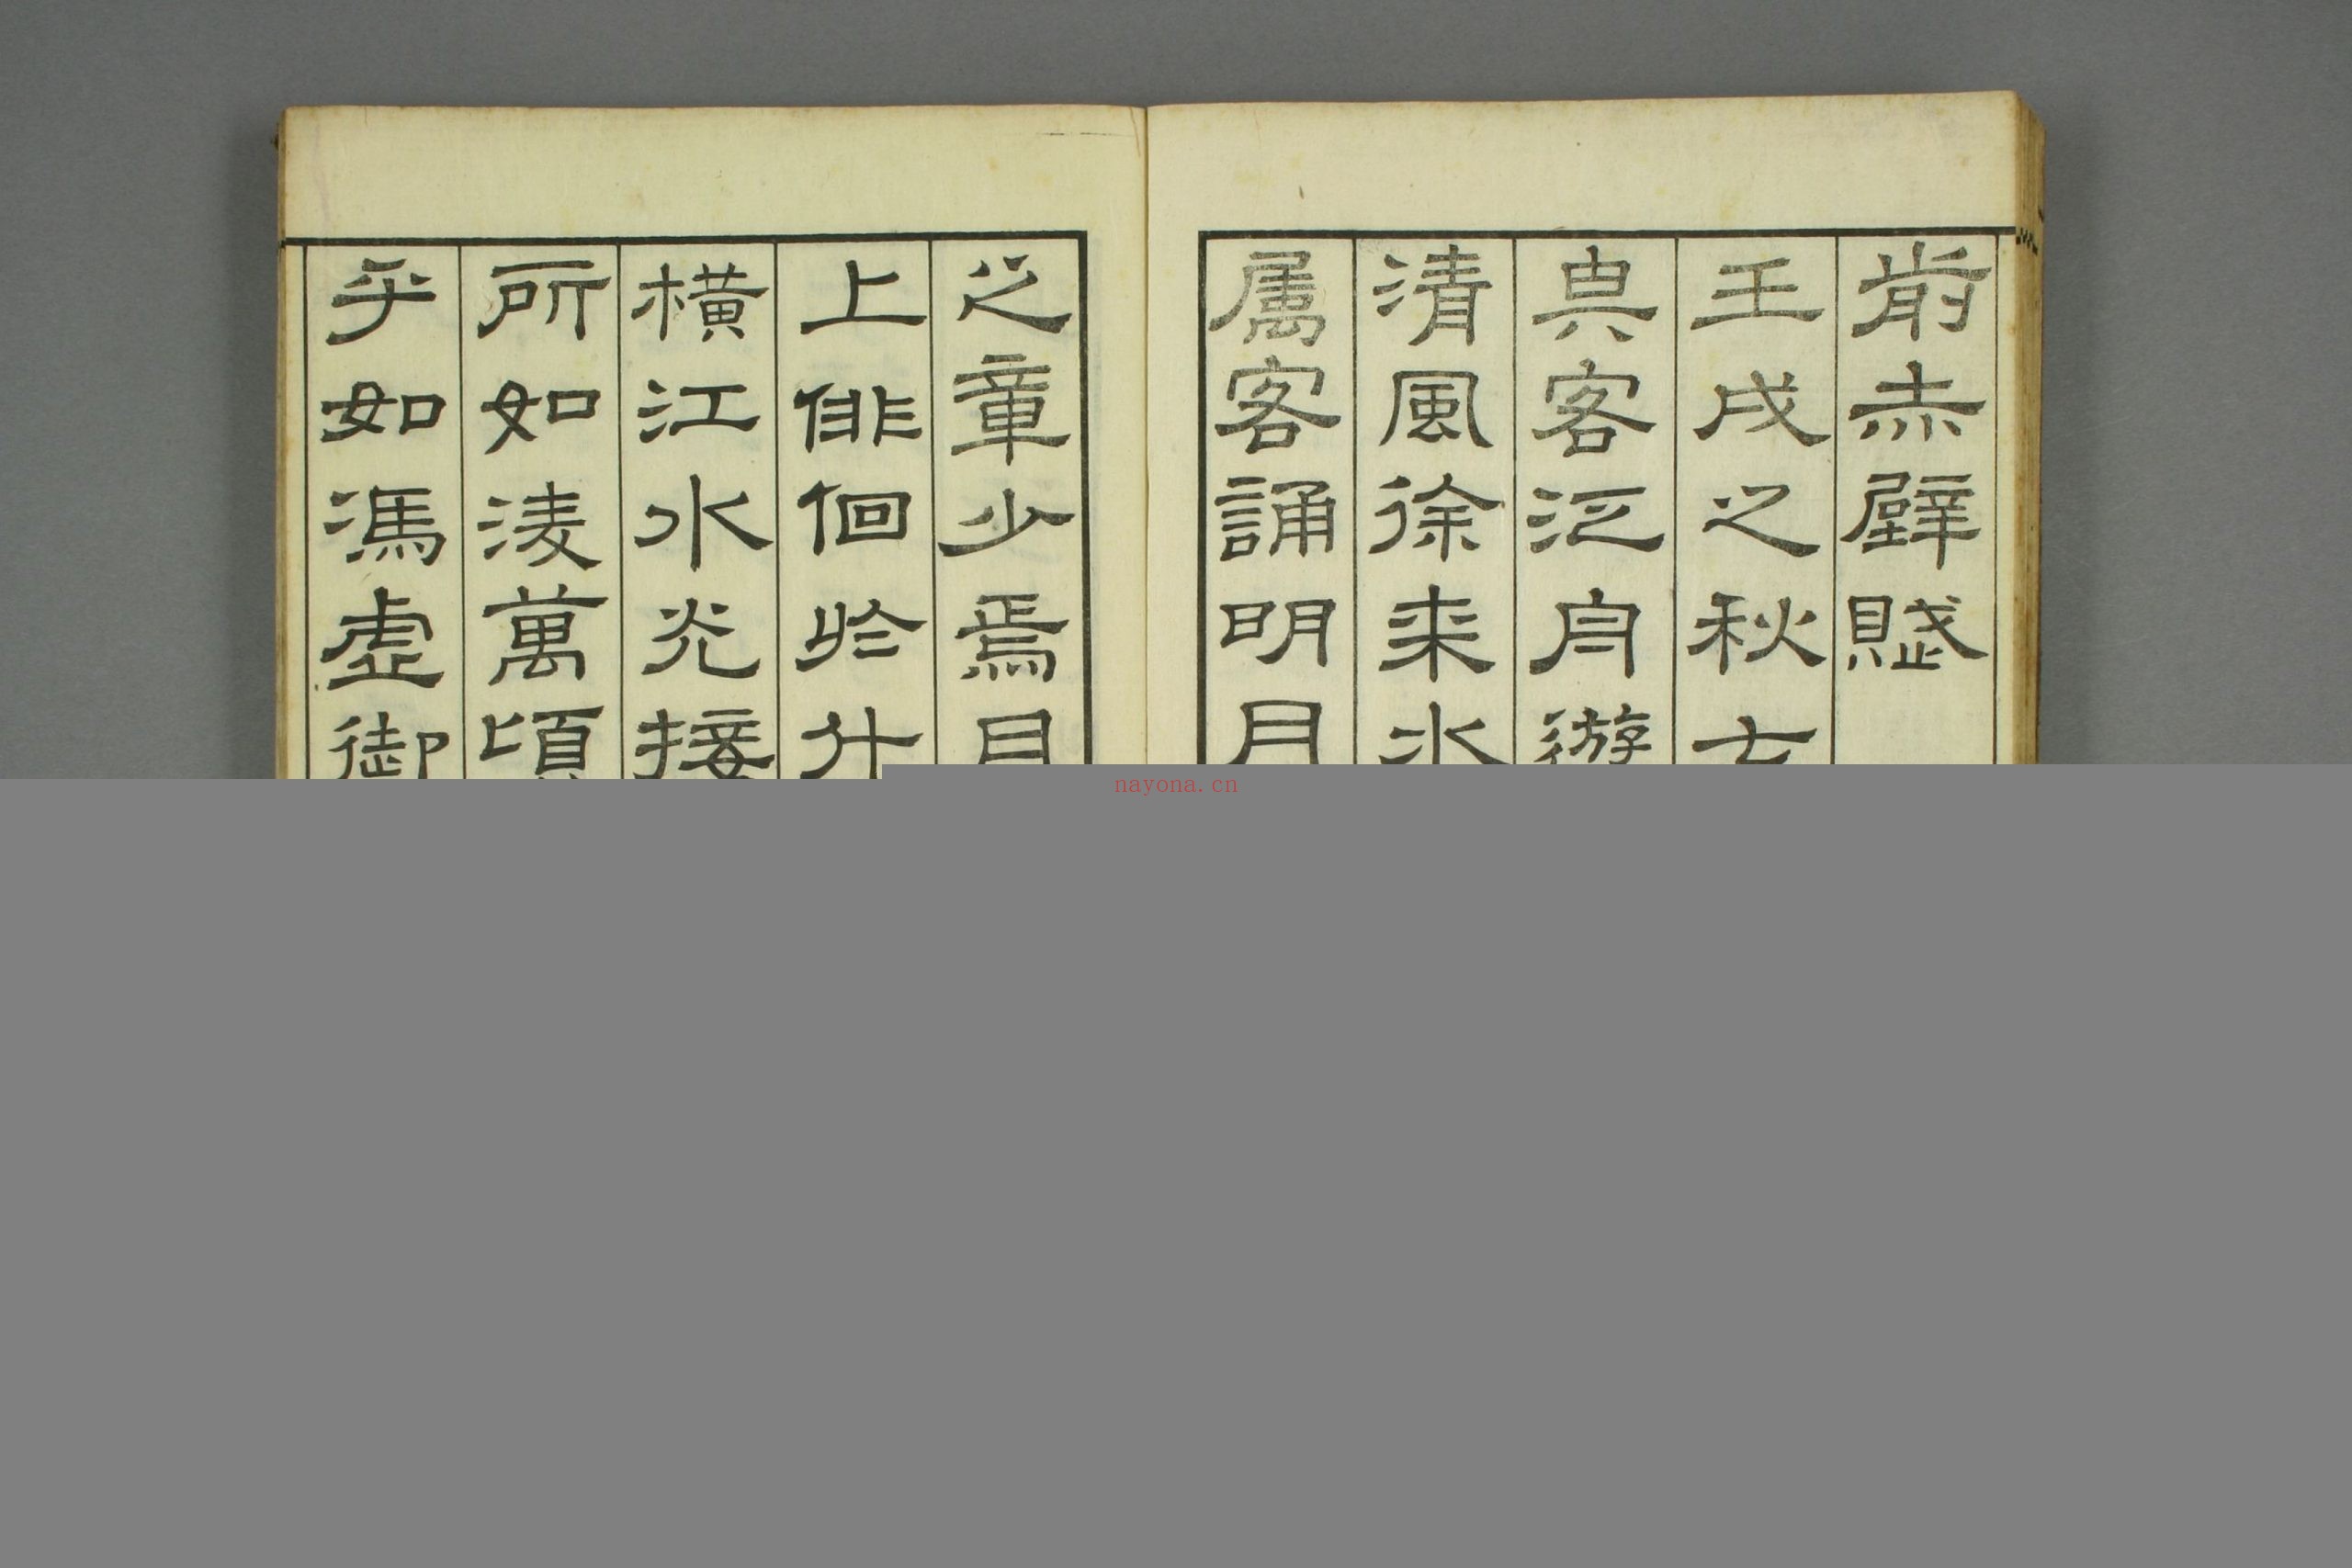 前赤壁賦
壬戌之秋七
與客泛舟遊
清風徐来水
属客誦明月
之章少焉
上俳佪於
横江水光接
所如淩萬頃
乎如馮虛御
nayona.cn